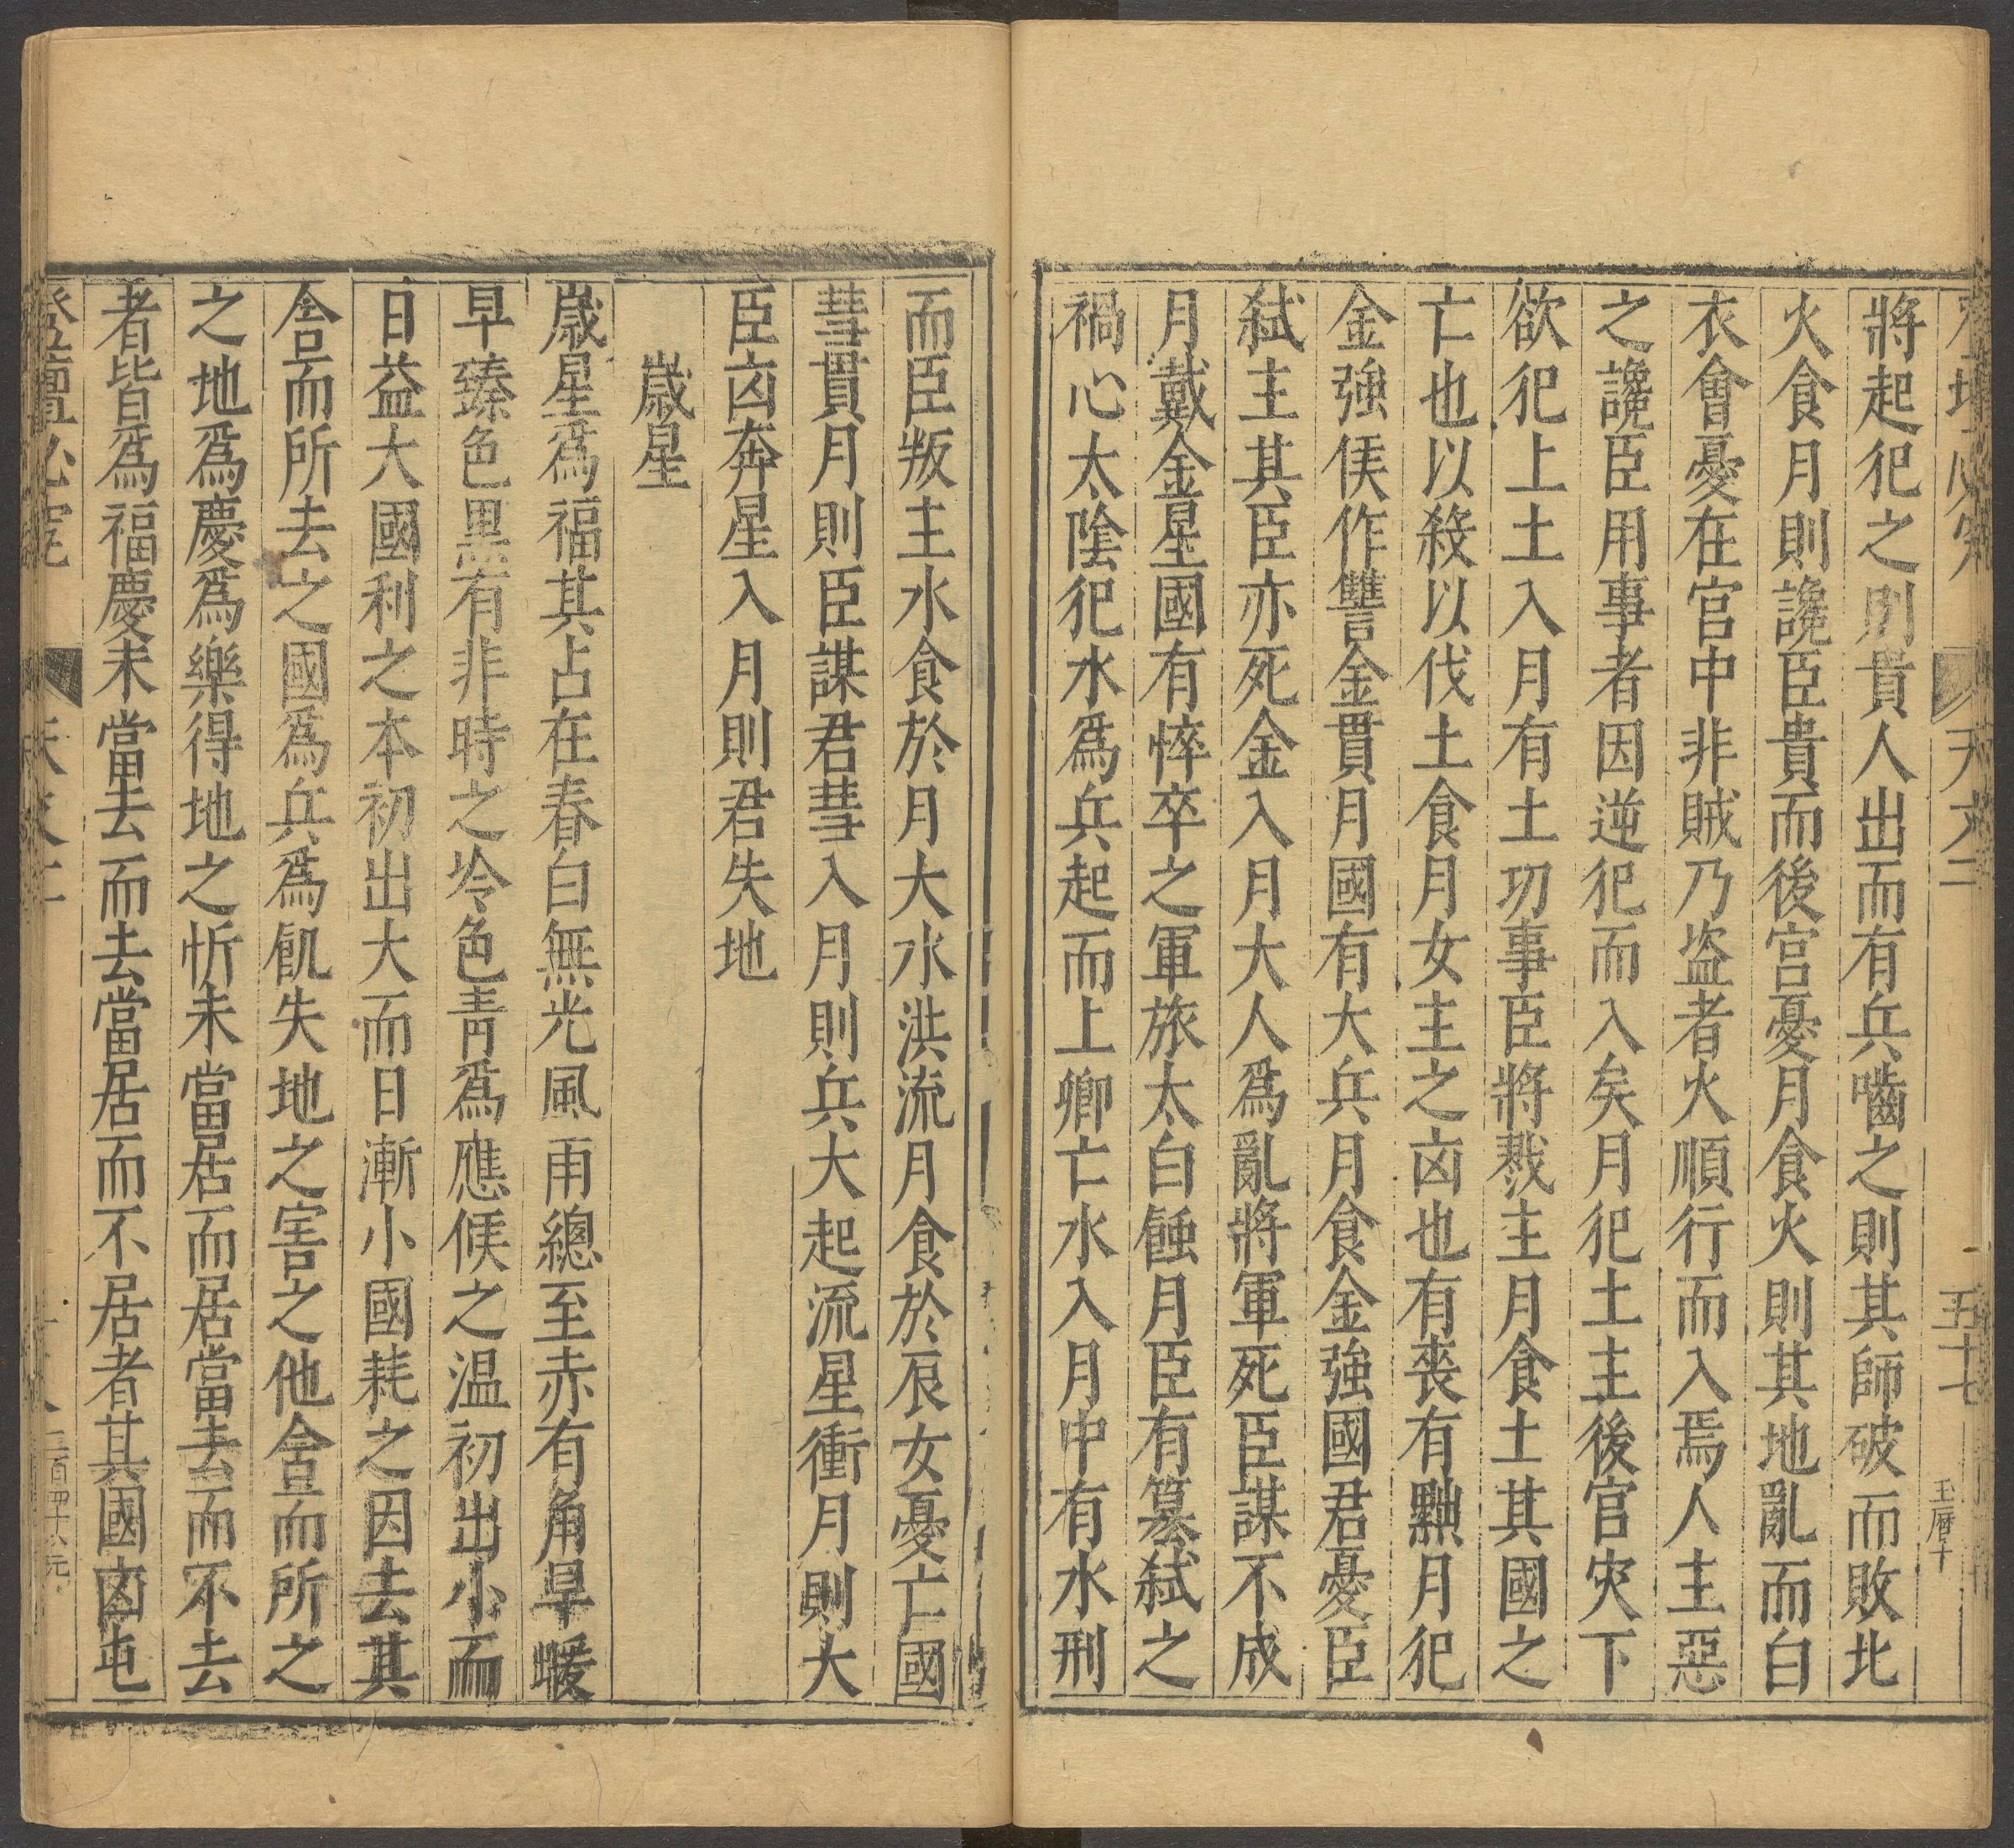 登壇必究 天文二 五十七 王曆十
將起犯之則貴人出而有兵嚙之則其師破而敗北
火食月則讒臣貴而後宮憂月食火則其地亂而白
衣會憂在官中非賊乃盗者火順行而入焉人主惡
之讒臣用事者因逆犯而入矣月犯土主後官灾下
欲犯上土入月有土功事臣將戮主月食土其國之
亡也以殺以伐土食月女主之凶也有喪有黜月犯
金強侯作讐金貫月國有大兵月食金強國君憂臣
弑主其臣亦死金入月大人爲亂將軍死臣謀不成
月戴金星國有悴卒之軍旅太白蝕月臣有篡弑之
禍心太陰犯水爲兵起而上卿亡水入月中有水刑
而臣叛主水食於月大水洪流月食於辰女憂亡國
彗貫月則臣謀君彗入月則兵大起流星衝月則大
臣凶奔星入月則君失地
歲星
歲星爲福其占在春白無光風雨總至赤有角旱暖
早臻色黒有非時之冷色靑爲應候之温初出小而
日益大國利之本初出大而日漸小國耗之因去其
舎而所去之國爲兵爲飢失地之害之他舍而所之
之地爲慶爲樂得地之忻未當居而居當去而不去
者皆爲福慶未當去而去當居而不居者其國凶屯
登壇必究 天文二 二百四十八元